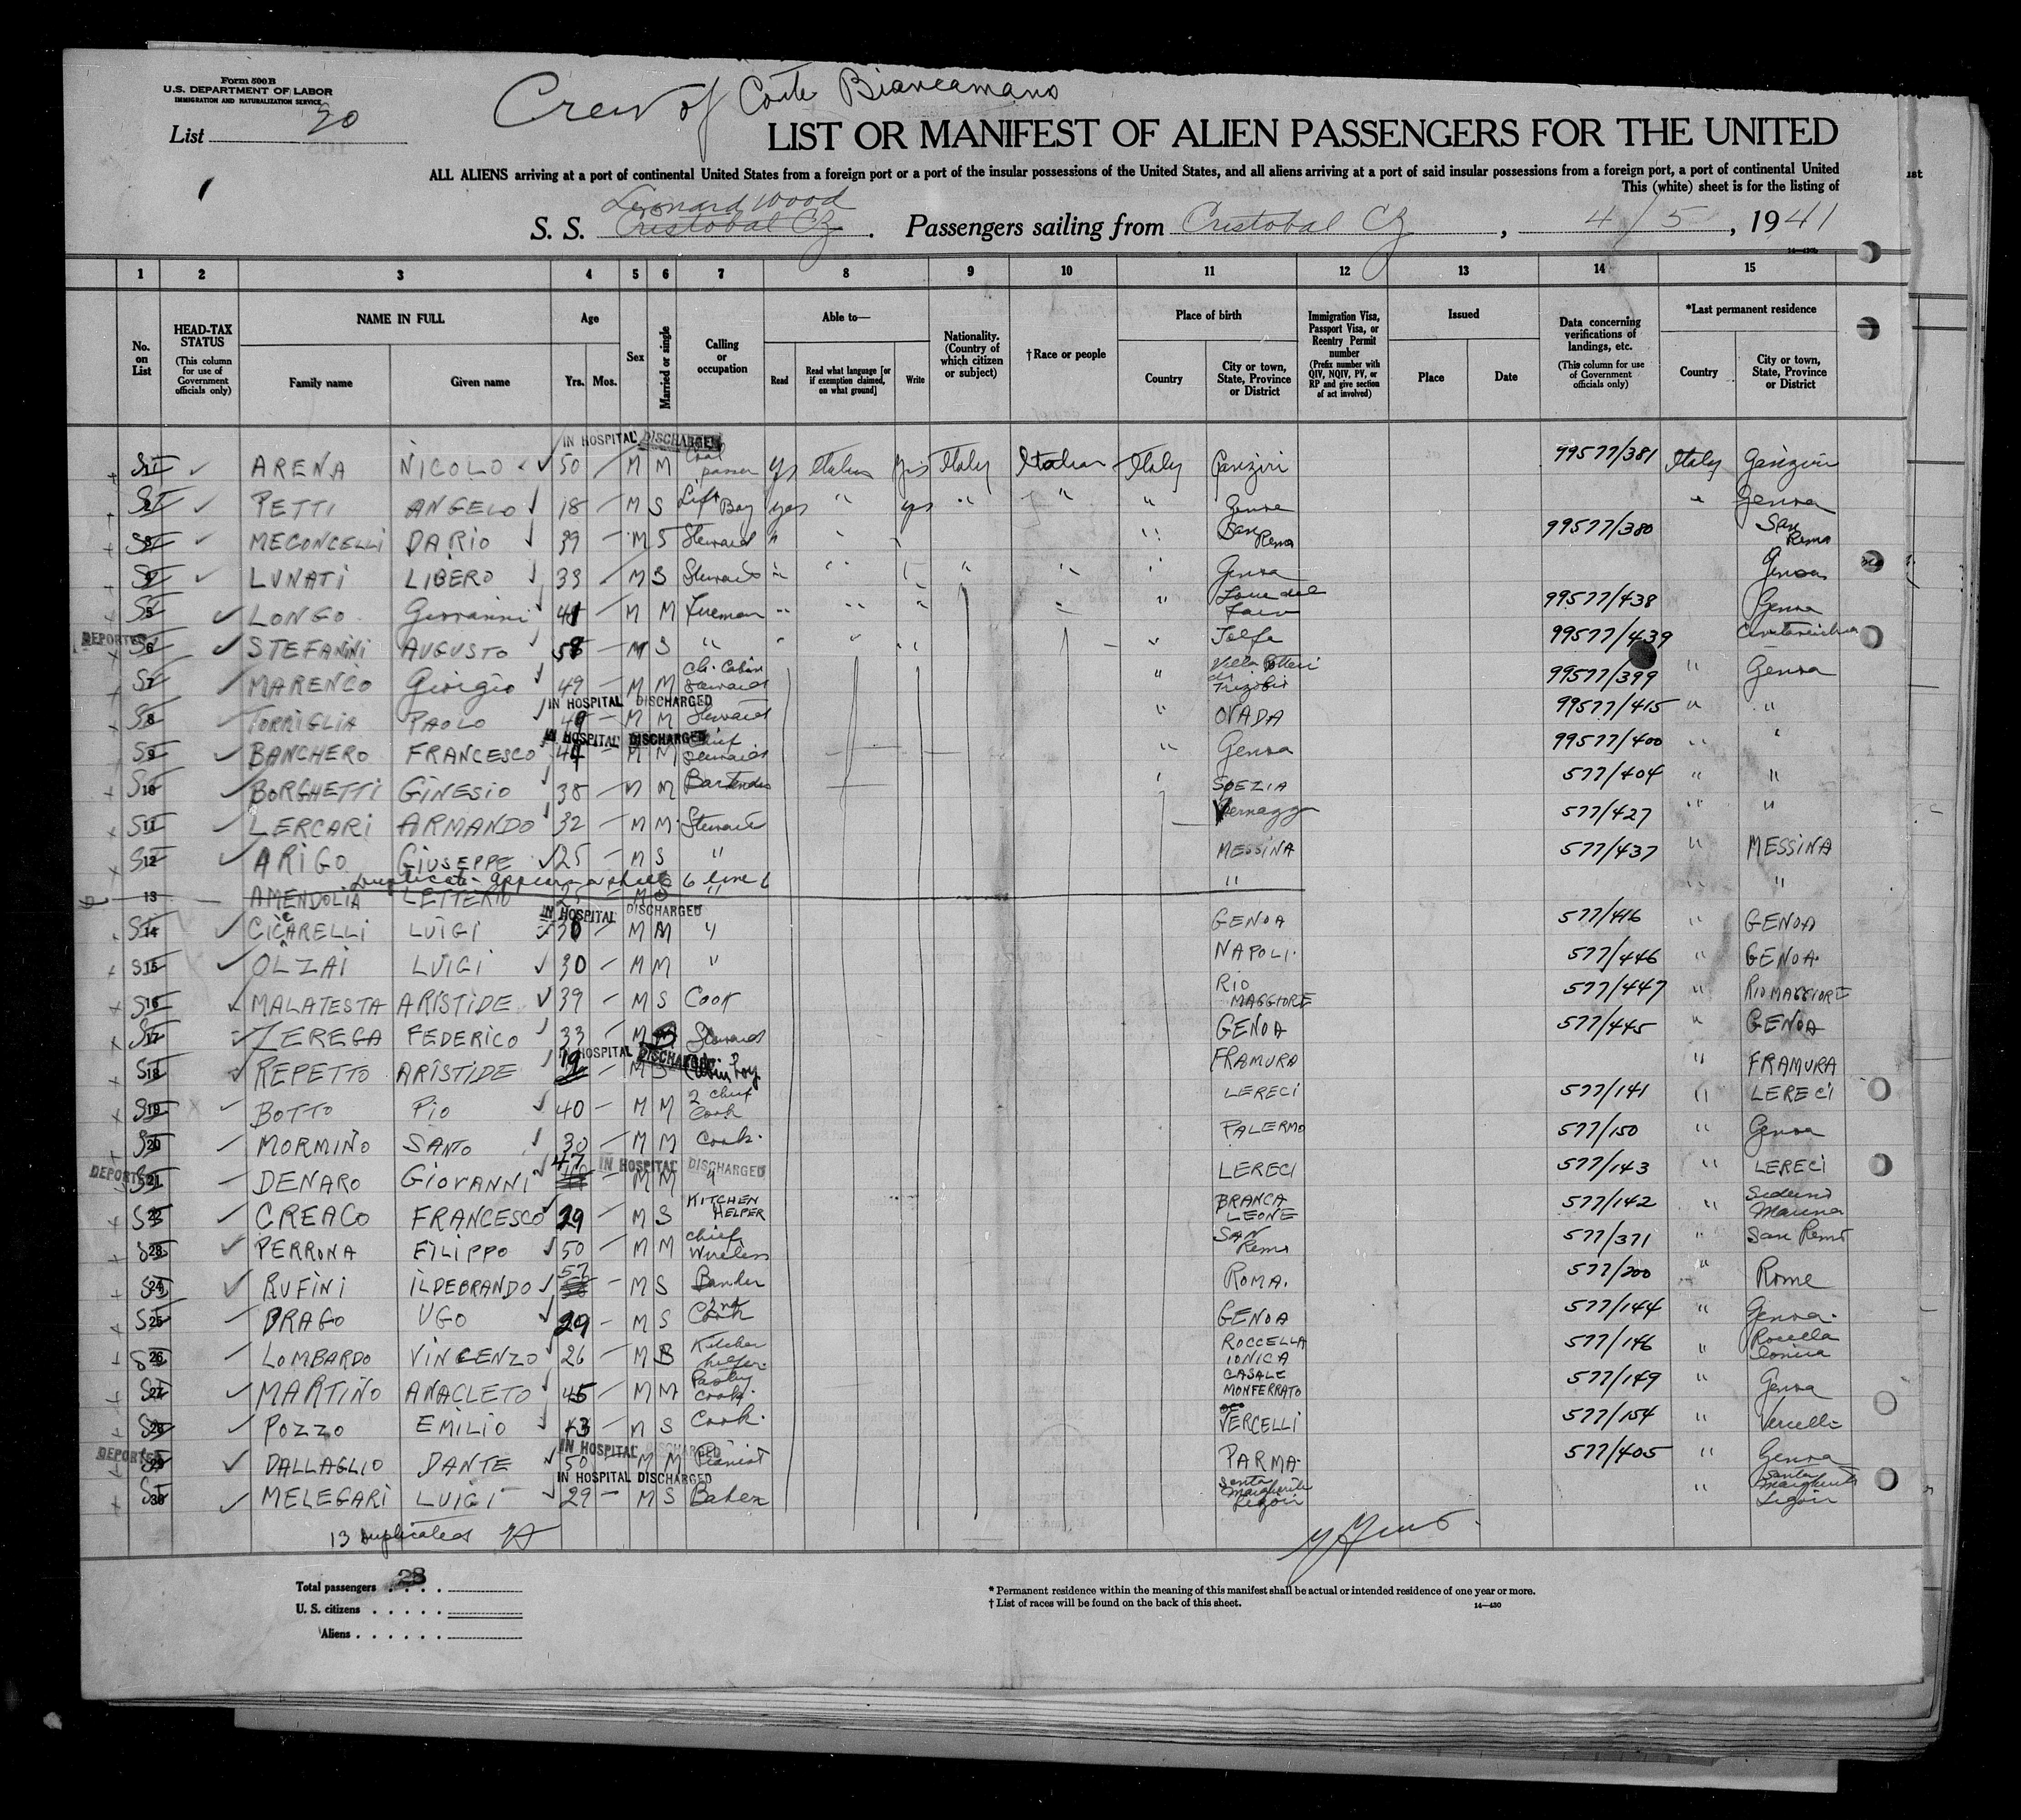 Form 500 B
U.S. DEPARTMENT OF LABOR
IMMIGRATION AND NATURALIZATION SERVICE
List 30
Crew of Conte Biancamano
LIST OR MANIFEST OF ALIEN PASSENGERS FOR THE UNITED
ALL ALIENS arriving at a port of continental United States from a foreign port or a port of the insular possessions of the United States, and all aliens arriving at a port of said insular possessions from a foreign port, a port of continental United
This (white) sheet is for the listing of
Leonard Wood
S. S. Cristobal CZ. Passengers sailing from Cristobal CZ, 4/5, 1941
1 2 3 4 5 6 7 8 9 10 11 12 13 14 15
No. on List
HEAD-TAX STATUS (This column for use of Government officials only)
NAME IN FULL
Family name Given name
Age
Yrs. Mos.
Sex
Married or single
Calling or occupation
Able to—
Read Read what language [or if exemption claimed, on what ground] Write
Nationality. (Country of which citizen or subject)
†Race or people
Place of birth
Country City or town, State, Province or District
Immigration Visa, Passport Visa, or Reentry Permit number (Prefix number with QIV, NQIV, PV, or RP and give section of act involved)
Issued
Place Date
Data concerning verifications of landings, etc. (This column for use of Government officials only)
*Last permanent residence
Country City or town, State, Province or District
IN HOSPITAL DISCHARGED
1 ARENA NICOLO 50 M M Coal passer yes Italian yes Italy Italian Italy 99577/381 Italy
2 PETTI ANGELO 18 M S Lift Boy yes " yes " " " Genoa " Genoa
3 MECONCELLI DARIO 39 M S Steward " " " San Remo 99577/380 San Remo
4 LUNATI LIBERO 33 M S Steward " " " " " Genoa Genoa
5 LONGO Giovanni 41 M M Fireman " " " " " 99577/438 Genoa
DEPORTED
6 STEFANINI AUGUSTO 58 M S " " " " " Tolfa 99577/439 Civitavecchia
7 MARENCO Giorgio 49 M M Ch. Cabin Steward " 99577/399 " Genoa
IN HOSPITAL DISCHARGED
8 TORRIGLIA PAOLO 49 M M Steward " OVADA 99577/415 " "
IN HOSPITAL DISCHARGED
9 BANCHERO FRANCESCO 44 M M Chief Steward " Genoa 99577/400 " "
10 BORGHETTI GINESIO 38 M M Bartender " SPEZIA 577/404 " "
11 LERCARI ARMANDO 32 M M Steward 577/427 " "
12 ARIGO GIUSEPPE 25 M S " MESSINA 577/437 " MESSINA
Duplicate - appear on sheet 6 line 6
13 AMENDOLIA LETTERIO 25 M " " " "
IN HOSPITAL DISCHARGED
14 CICARELLI LUIGI M M " GENOA 577/416 " GENOA
15 OLZAI LUIGI 30 M M " NAPOLI. 577/446 " GENOA.
16 MALATESTA ARISTIDE 39 M S COOK RIO MAGGIORE 577/447 " RIO MAGGIORE
17 ZEREGA FEDERICO 33 M M Steward GENOA 577/445 " GENOA
IN HOSPITAL DISCHARGED
18 REPETTO ARISTIDE 19 M S Cabin boy FRAMURA " FRAMURA
19 BOTTO PIO 40 M M 2 chief Cook LERECI 577/141 " LERECI
20 MORMINO SANTO 30 M M Cook. PALERMO 577/150 " Genoa
DEPORTED IN HOSPITAL DISCHARGED
21 DENARO GIOVANNI 47 M M " LERECI 577/143 " LERECI
22 CREACO FRANCESCO 29 M S KITCHEN HELPER BRANCA LEONE 577/142 " Siderno Marina
23 PERRONA FILIPPO 50 M M Chief Wireless SAN Remo 577/371 " San Remo
24 RUFINI ILDEBRANDO 57 M S ROMA. 577/200 " Rome
25 DRAGO UGO 29 M S 2nd Cook GENOA 577/144 " Genoa.
26 LOMBARDO VINCENZO 26 M S Kitchen helper. ROCCELLA IONICA 577/146 " Rocella Ionica
27 MARTINO ANACLETO 45 M M Pastry cook. CASALE MONFERRATO 577/149 " Genoa
28 POZZO EMILIO 43 M S Cook. VERCELLI 577/154 " Vercelli
DEPORTED IN HOSPITAL DISCHARGED
29 DALLAGLIO DANTE 50 M M Pianist PARMA 577/405 " Genoa
IN HOSPITAL DISCHARGED
30 MELEGARI LUIGI 29 M S Baker Santa Margherita Ligure " Santa Margherita Ligure
13 duplicated
Total passengers . . . . 28
U. S. citizens . . . . .
Aliens . . . . . .
* Permanent residence within the meaning of this manifest shall be actual or intended residence of one year or more.
† List of races will be found on the back of this sheet.
14—430